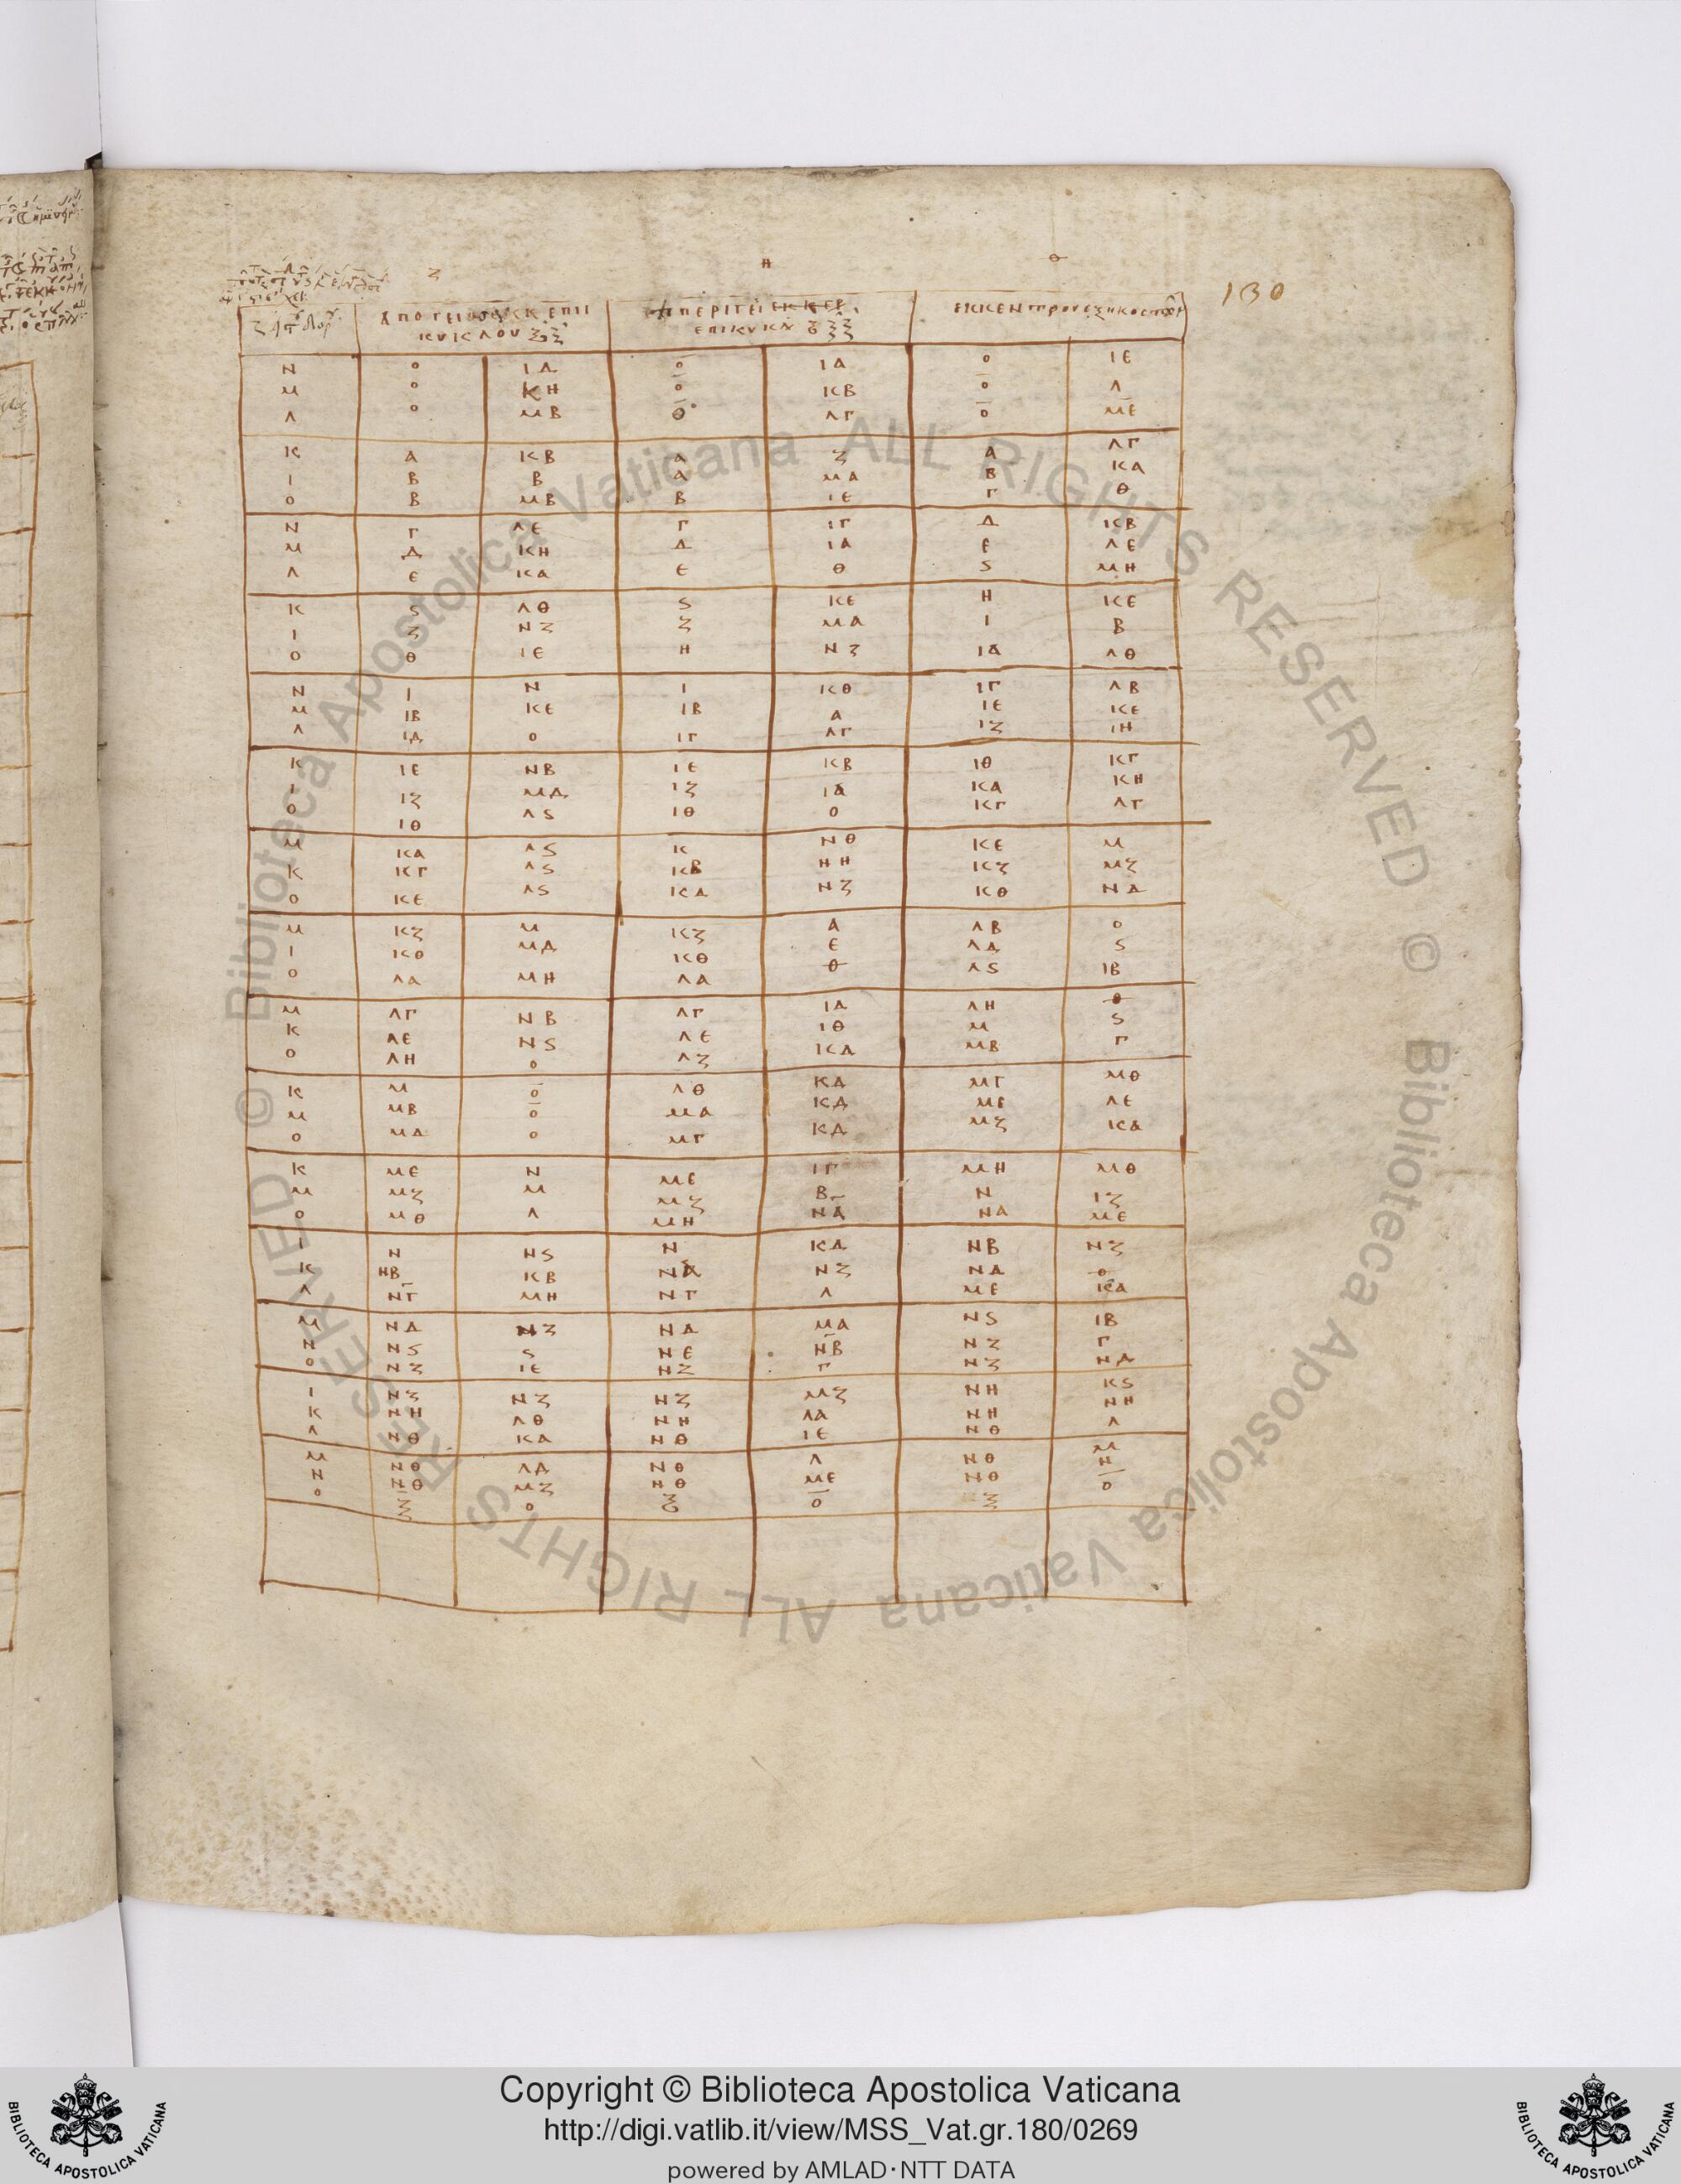 Ζ Η Θ
130
ΕΠΙ
ΚΥΚΛΟΥ
Ν Ο ΙΔ Ο ΙΑ Ο ΙΕ
Μ Ο ΚΗ Ο ΚΒ Ο Λ
Λ Ο ΜΒ Ο ΛΓ Ο ΜΕ
Κ Α ΚΒ Α Ζ Α ΛΓ
Ι Β Β Α ΜΑ Β ΚΑ
Ο Β ΜΒ Β ΙΕ Γ Θ
Ν Γ ΛΕ Γ ΙΓ Δ ΚΒ
Μ Δ ΚΗ Δ ΙΑ Ε ΛΕ
Λ Ε ΚΑ Ε Θ Ϛ ΜΗ
Κ Ϛ ΛΘ Ϛ ΚΕ Η ΚΕ
Ι Ζ ΝΖ Ζ ΜΑ Ι Β
Ο Θ ΙΕ Η ΝΖ ΙΑ ΛΘ
Ν Ι Ν Ι ΚΘ ΙΓ ΛΒ
Μ ΙΒ ΚΕ ΙΒ Α ΙΕ ΚΕ
Λ ΙΔ Ο ΙΓ ΛΓ ΙΖ ΙΗ
Κ ΙΕ ΝΒ ΙΕ ΚΒ ΙΘ ΚΓ
Ι ΙΖ ΜΔ ΙΖ ΙΑ ΚΑ ΚΗ
Ο ΙΘ ΛϚ ΙΘ Ο ΚΓ ΛΓ
Μ ΚΑ ΛϚ Κ ΝΘ ΚΕ Μ
Κ ΚΓ ΛϚ ΚΒ ΝΗ ΚΖ ΜΖ
Ο ΚΕ ΛϚ ΚΔ ΝΖ ΚΘ ΝΔ
Μ ΚΖ Μ ΚΖ Α ΛΒ Ο
Ι ΚΘ ΜΔ ΚΘ Ε ΛΔ Ϛ
Ο ΛΑ ΜΗ ΛΑ Θ ΛϚ ΙΒ
Μ ΛΓ ΝΒ ΛΓ ΙΔ ΛΗ Θ
Κ ΛΕ ΝϚ ΛΕ ΙΘ Μ Ϛ
Ο ΛΗ Ο ΛΖ ΚΔ ΜΒ Γ
Κ Μ Ο ΛΘ ΚΔ ΜΓ ΜΘ
Μ ΜΒ Ο ΜΑ ΚΔ ΜΕ ΛΕ
Ο ΜΔ Ο ΜΓ ΚΔ ΜΖ ΚΑ
Κ ΜΕ Ν ΜΕ ΙΓ ΜΗ ΜΘ
Μ ΜΖ Μ ΜΖ Β Ν ΙΖ
Ο ΜΘ Λ ΜΗ ΝΑ ΝΑ ΜΕ
Ι Ν ΝϚ Ν ΚΔ ΝΒ ΝΖ
Κ ΝΒ ΚΒ ΝΑ ΝΖ ΝΔ Θ
Λ ΝΓ ΜΗ ΝΓ Λ ΜΕ ΚΑ
Μ ΝΔ ΝΖ ΝΔ ΜΑ ΝϚ ΙΒ
Ν ΝϚ Ϛ ΝΕ ΝΒ ΝΖ Γ
Ο ΝΖ ΙΕ ΝΖ Γ ΝΖ ΝΔ
Ι ΝΖ ΝΖ ΝΖ ΜΖ ΝΗ ΚϚ
Κ ΝΗ ΛΘ ΝΗ ΛΑ ΝΗ ΝΗ
Λ ΝΘ ΚΑ ΝΘ ΙΕ ΝΘ Λ
Μ ΝΘ ΛΔ ΝΘ Λ ΝΘ Μ
Ν ΝΘ ΜΖ ΝΘ ΜΕ ΝΘ Ν
Ο Ξ Ο Ξ Ο Ξ Ο
© Biblioteca Apostolica Vaticana ALL RIGHTS RESERVED © Biblioteca Apostolica Vaticana ALL RIGHTS RESERVED
BIBLIOTECA APOSTOLICA VATICANA
Copyright © Biblioteca Apostolica Vaticana
http://digi.vatlib.it/view/MSS_Vat.gr.180/0269
powered by AMLAD·NTT DATA
BIBLIOTECA APOSTOLICA VATICANA